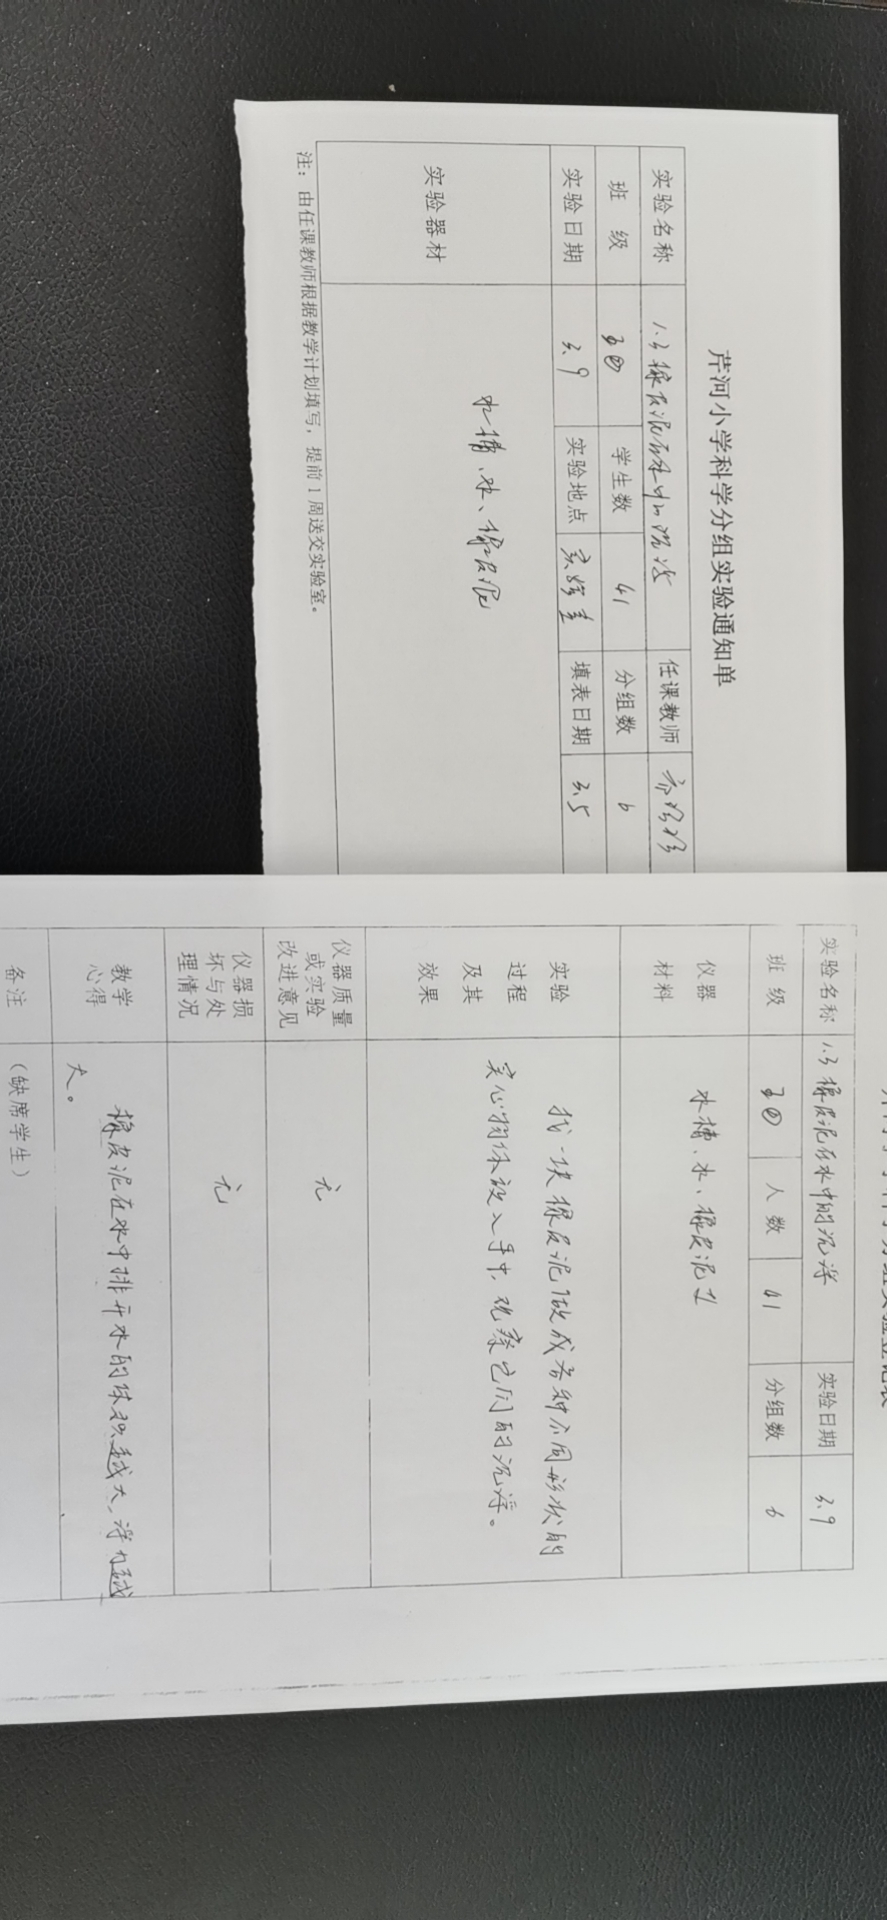 芹河小学科学分组实验通知单
实验名称 1.3橡皮泥在水中的沉浮 任课教师
班 级 学生数 41 分组数 6
实验日期 3.9 实验地点 实验室 填表日期 3.5
实验器材 水槽、水、橡皮泥
注：由任课教师根据教学计划填写，提前1周送交实验室。
实验名称 1.3橡皮泥在水中的沉浮 实验日期 3.9
班 级 人 数 41 分组数 6
仪器
材料
水槽、水、橡皮泥
实验
过程
及其
效果
找一块橡皮泥做成各种不同形状的
实心物体放入手中,观察它们的沉浮。
仪器质量
或实验
改进意见
无
仪器损
坏与处
理情况
无
教学
心得
橡皮泥在水中排开水的体积越大,浮力越
大。
备注
（缺席学生）